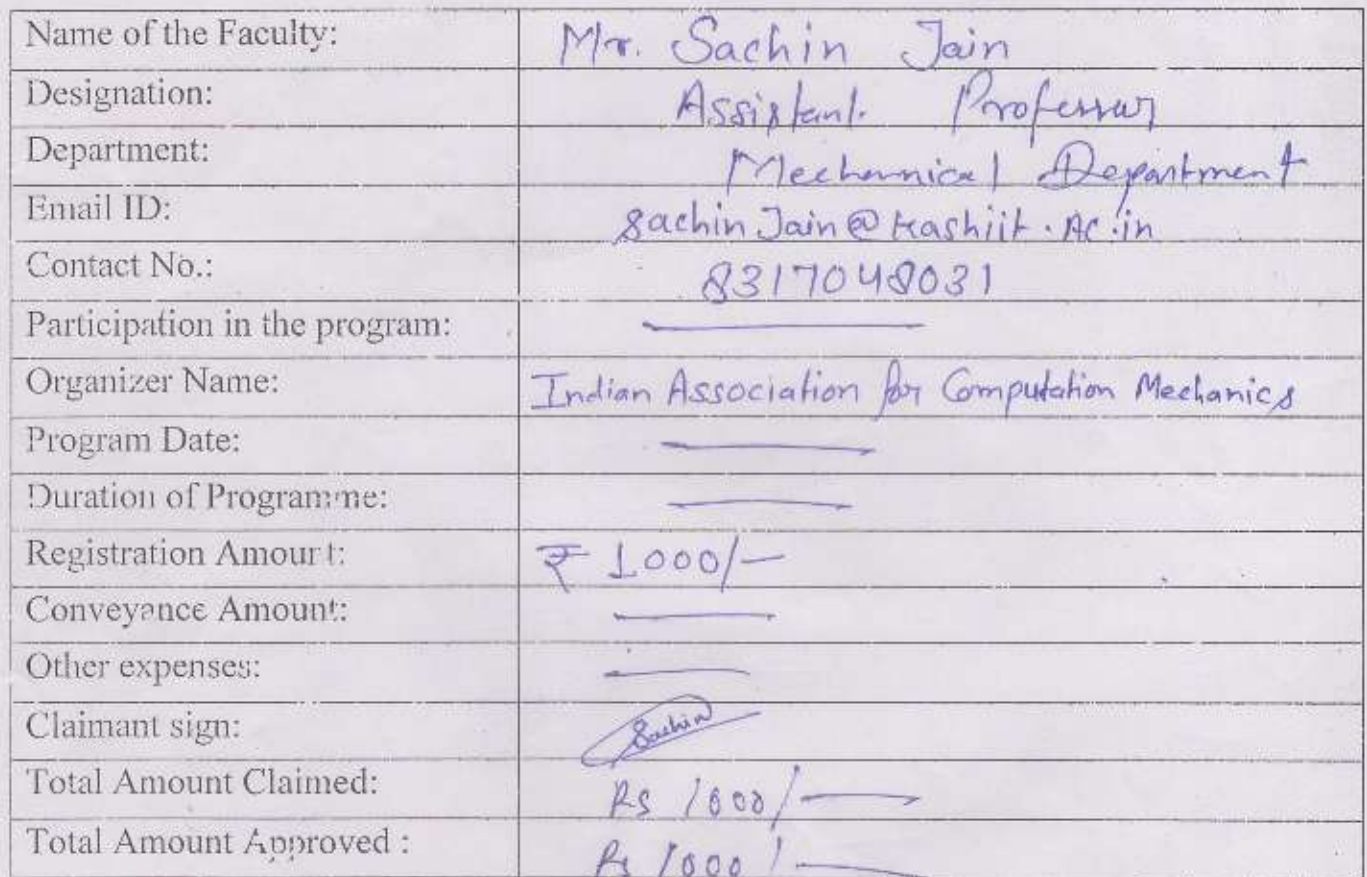 Name of the Faculty: Mr. Sachin Jain
Designation: Assistant Professor
Department: Mechanical Department
Email ID: SachinJain@kashiit.Ac.in
Contact No.: 8317048031
Participation in the program: —
Organizer Name: Indian Association for Computation Mechanics
Program Date: —
Duration of Programme: —
Registration Amount: ₹ 1000/-
Conveyance Amount: —
Other expenses: —
Claimant sign: Sachin
Total Amount Claimed: Rs 1000/-
Total Amount Approved : Rs 1000/-